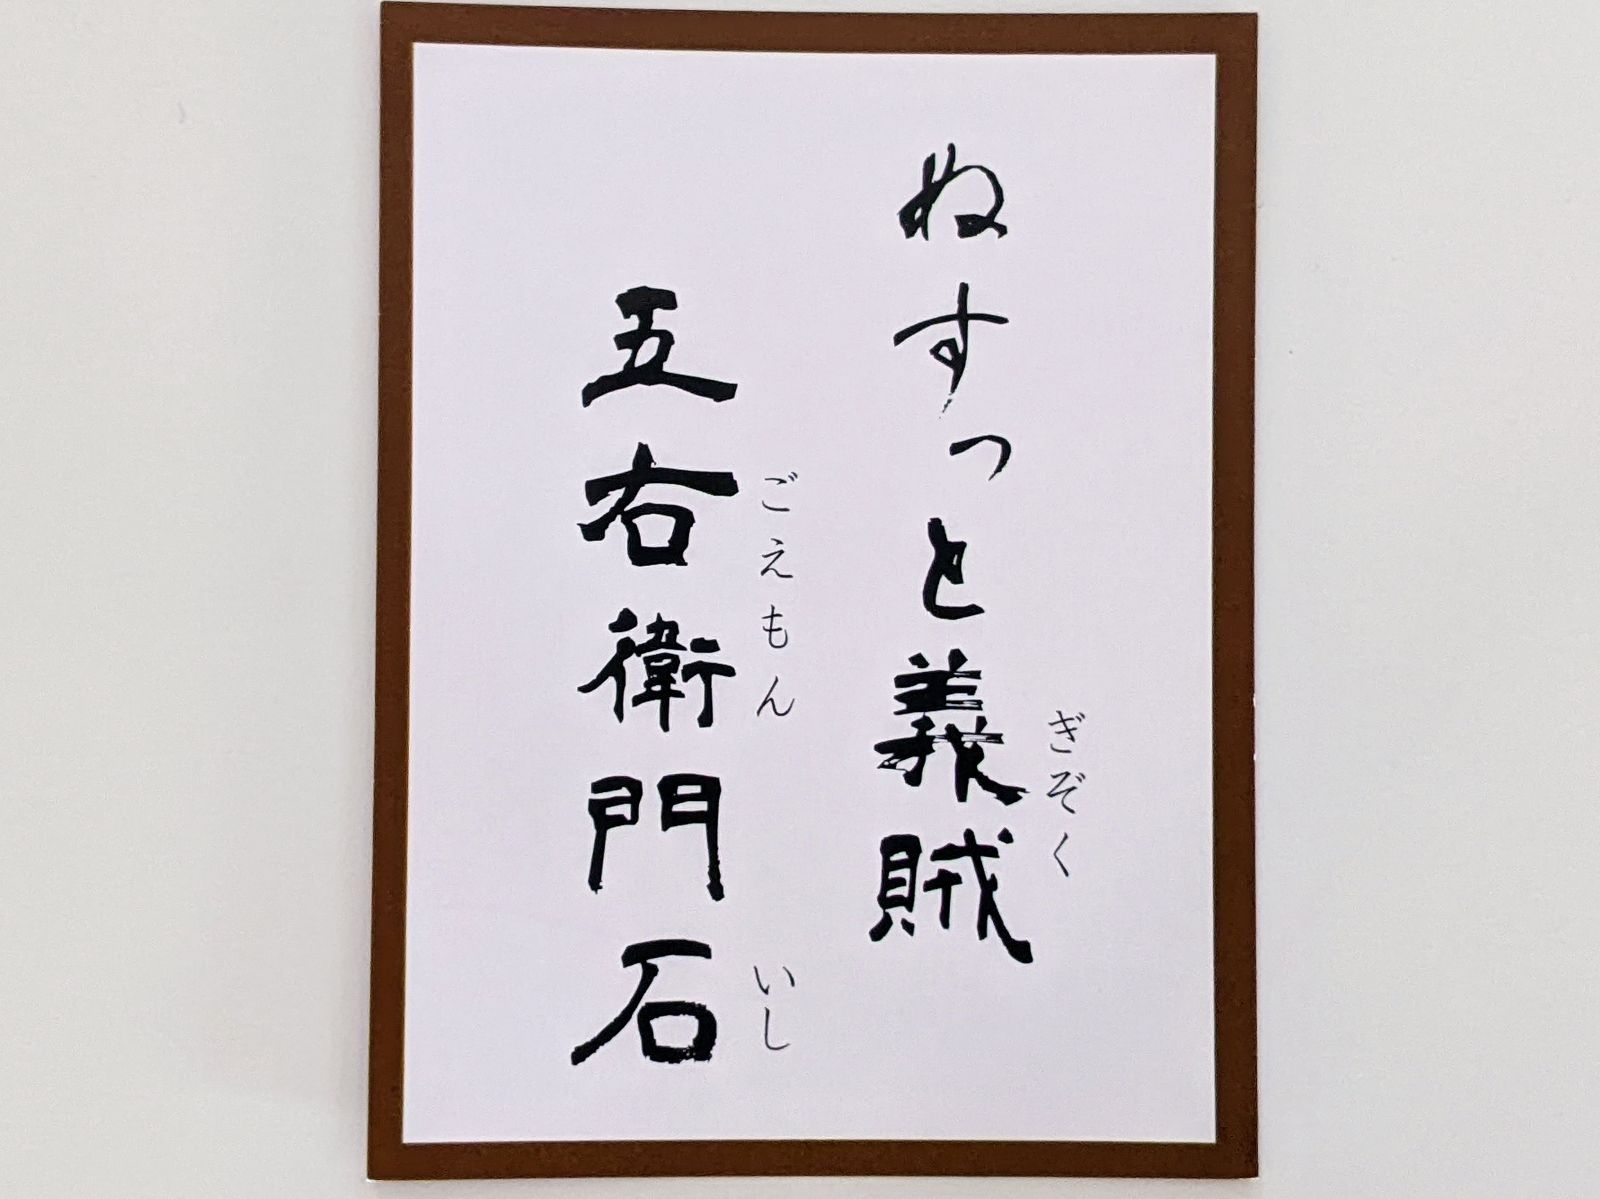 ぬすっと義賊
ぎぞく
五右衛門石
ごえもん
いし